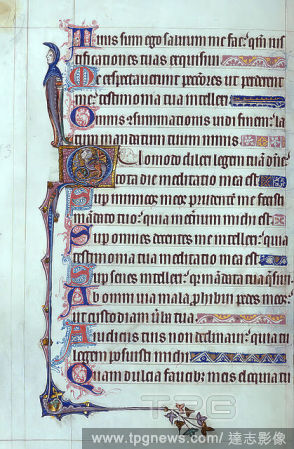 Tuus sum ego saluum me fac: qm ius
tificationes tuas exquisiui.
Me expectauerunt peccores ut perderent
me: testimonia tua intellexi.
Omnis consummationis uidi finem: la
tum mandatum tuum nimis.
Quomodo dilexi legem tuam dne:
tota die meditatio mea est.
Sup inimicos meos prudente me fecisti
mandato tuo: quia in eternum michi est.
Sup omnes docentes me intellexi: quia
testimonia tua meditatio mea est.
Sup senes intellexi: qr mandata tua quesiui.
Ab omni uia mala phibui pedes meos:
ut custodiam uerba tua.
A iudiciis tuis non declinaui: quia tu
legem posuisti michi.
Quam dulcia faucibz meis eloquia tu
TPG
www.tpgnews.com / 達志影像